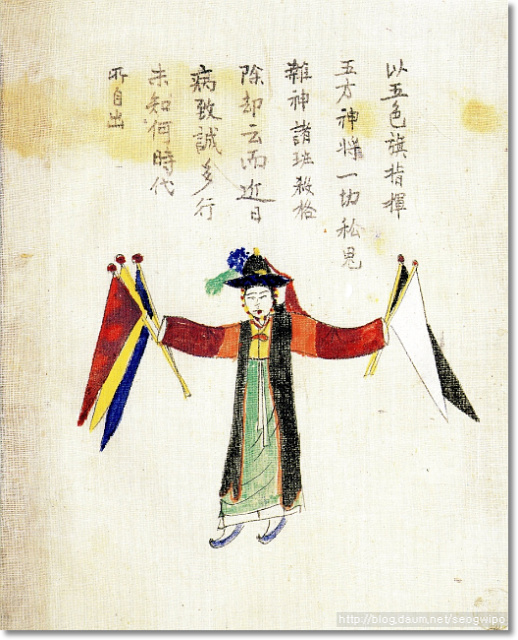 以五色旗指揮
五方神將一切私鬼
雜神諸班殺格
除却云而近日
病致誠多行
未知何時代
所自出
http://blog.daum.net/seogwipo